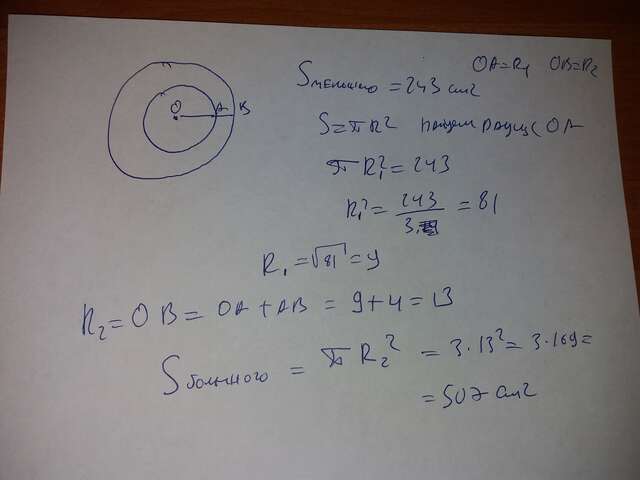 OA=R₁ OB=R₂
Sменьшего = 243 см²
S=πR² найдем радиус OA
πR₁²=243
R₁²=243/3=81
R₁=√81=9
R₂=OB=OA+AB=9+4=13
Sбольшого = πR₂² = 3·13²=3·169=
=507 см²
O A B